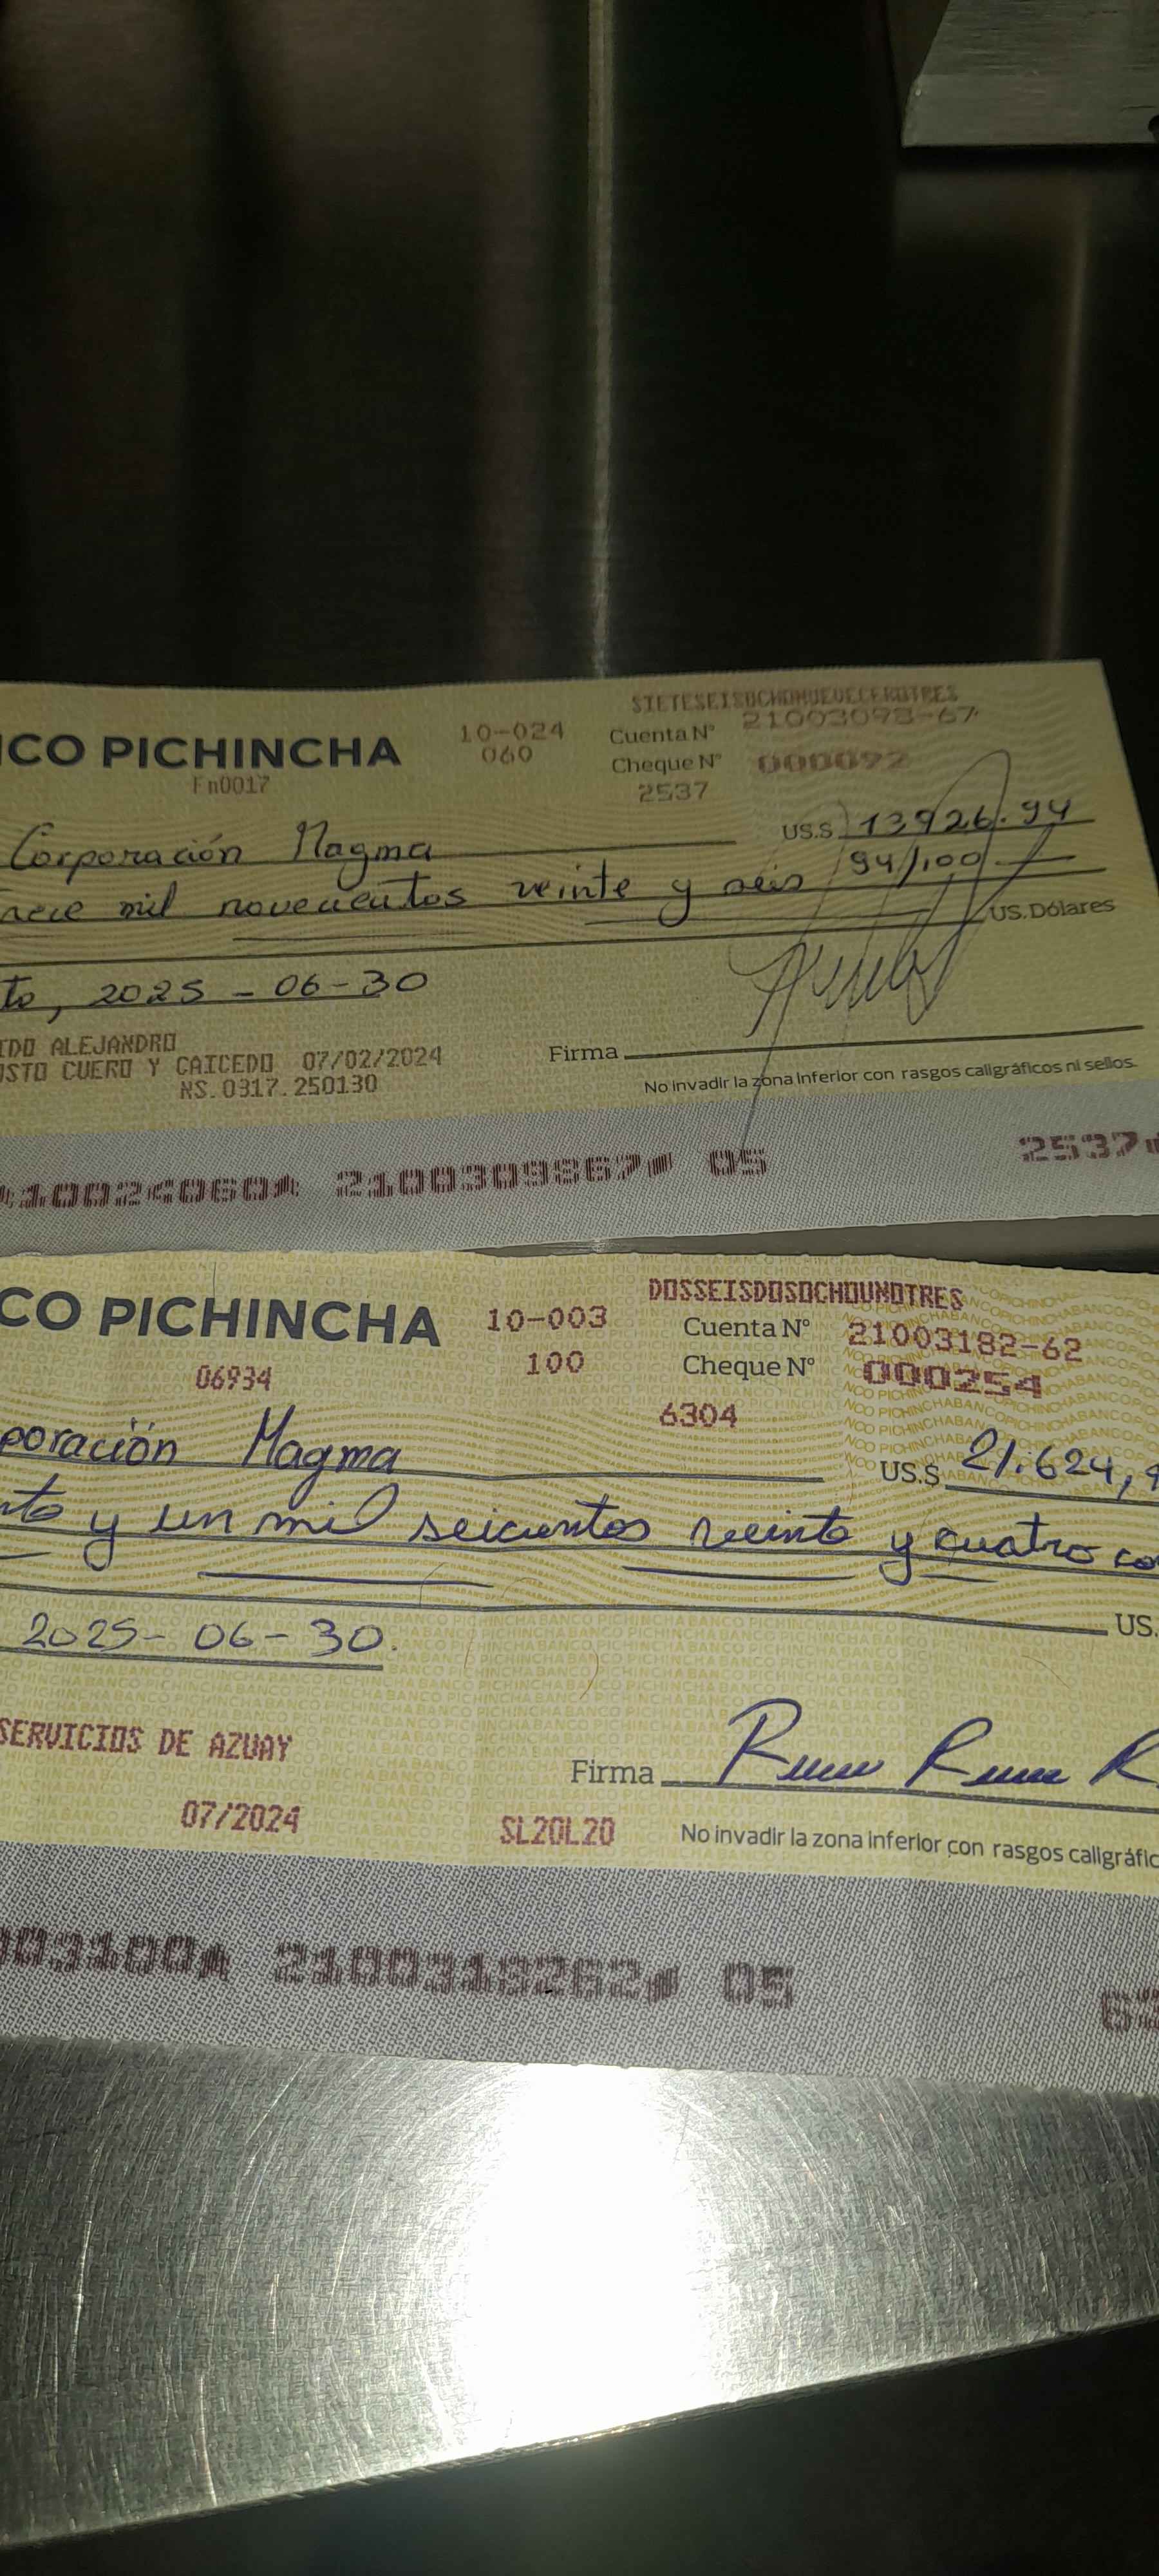 CO PICHINCHA
Fn0017
10-024
060
SIETESEISOCHONUEVECEROTRES
Cuenta N° 21003098-67
Cheque N° 000092
2537
Corporación Magma
US.$ 13926.94
mil novecientos veinte y seis 94/100
US. Dólares
to, 2025-06-30
IDO ALEJANDRO
USTO CUERO Y CAICEDO 07/02/2024
NS.0317.250130
Firma
No invadir la zona inferior con rasgos caligráficos ni sellos.
10024060 2100309867 05 2537
CO PICHINCHA
06934
10-003
100
DOSSEISDOSOCHOUNOTRES
Cuenta N° 21003182-62
Cheque N° 000254
6304
poración Magma
US.$ 21.624,9
nto y un mil seicientos veinte y cuatro co
US.
2025-06-30.
SERVICIOS DE AZUAY
07/2024
SL20L20
Firma
No invadir la zona inferior con rasgos caligráfic
003100 2100318262 05